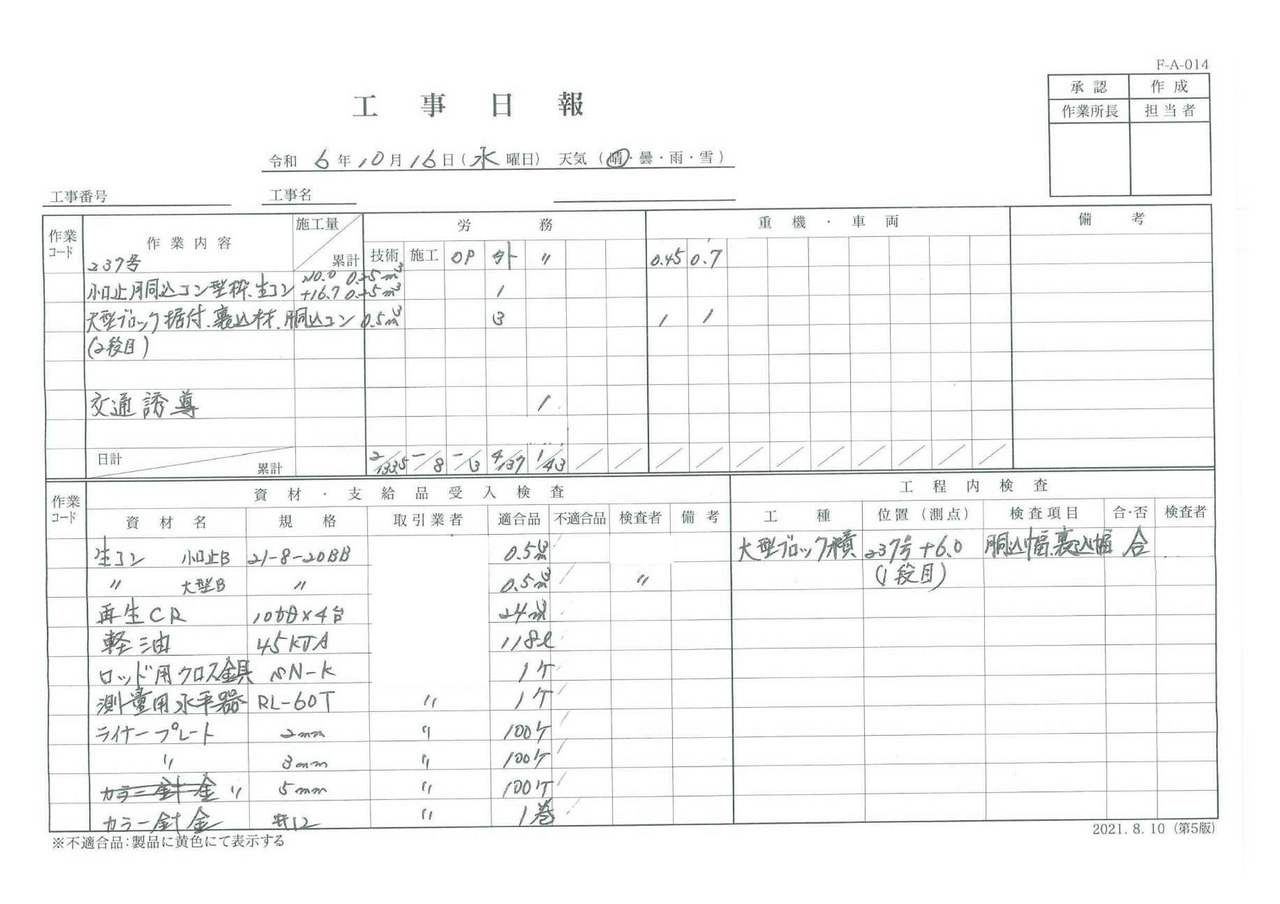 F-A-014
工事日報
承認 作成
作業所長 担当者
令和 6年 10月 16日(水曜日) 天気(晴・曇・雨・雪)
工事番号 工事名
作業コード 作業内容 施工量 累計 労務 重機・車両 備考
技術 施工 OP 外 〃 0.45 0.7
237号
小口止用胴込コン型枠、生コン +16.7 0.25m³ 1
大型ブロック据付、裏込材、胴込コン 0.5m³ 3 1 1
(2段目)
交通誘導 1
日計 累計 2/ -/8 -/3 4/137 1/43
作業コード 資材・支給品受入検査 工程内検査
資材名 規格 取引業者 適合品 不適合品 検査者 備考 工種 位置(測点) 検査項目 合・否 検査者
生コン 小口止B 21-8-20BB 0.5m³ 大型ブロック積 237号+6.0 胴込幅、裏込幅 合
〃 大型B 〃 0.5m³ 〃 (1段目)
再生CR 10t×4台 24m³
軽油 118ℓ
ロッド用クロス金具 SN-K 1ケ
測量用水平器 RL-60T 〃 1ケ
ライナープレート 2mm 〃 100ケ
〃 3mm 〃 100ケ
カラー針金 〃 5mm 〃 100ケ
カラー針金 #12 〃 1巻
※不適合品:製品に黄色にて表示する
2021.8.10(第5版)